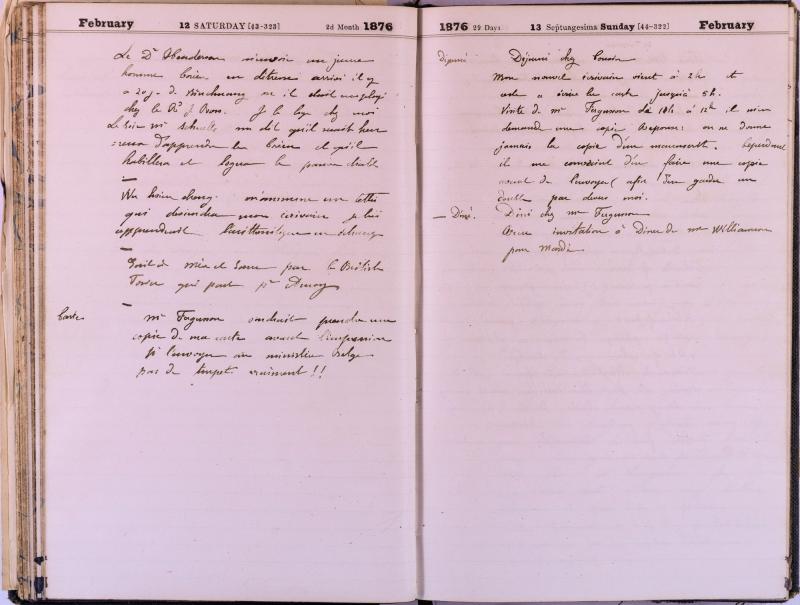 February
12 SATURDAY [43-323]
2d Month 1876
Le Dr Henderson m'envoie un jeune
homme Coréen en détresse arrivé il y
a 20 j. de
chez le Pr J. Ross. Je le loge chez moi
Le soir Mr me dit qu'il serait heu
d'apprendre le Coréen et qu'il
habillera et logera le pauvre diable
—
m'amène un lettré
qui deviendra mon écrivain je lui
apprendrait l'arithmétique en échange
—
par le British
qui part pr Amoy
—
Cartes
Mr Ferguson voudrait prendre une
copie de ma carte avant l'impression
pr l'envoyer au ministère Belge
pas de vraiment !!
1876 29 Days
13 Septuagesima Sunday [44-322]
February
Déjeuné
Déjeuné chez Cousin
Mon nouvel écrivain vient à 2h et
reste à écrire la carte jusqu'à 5h.
Visite de Mr Ferguson de 10h à 12h il me
demande une copie Réponse: on ne donne
jamais la copie d'un manuscrit. Cependant
il me convient d'en faire une copie
avant de l'envoyer (afin d'en garder un
double par devers moi.
— Diné.
Diné chez Mr Ferguson
invitation à Diner de Mr Williamson
pour Mardi